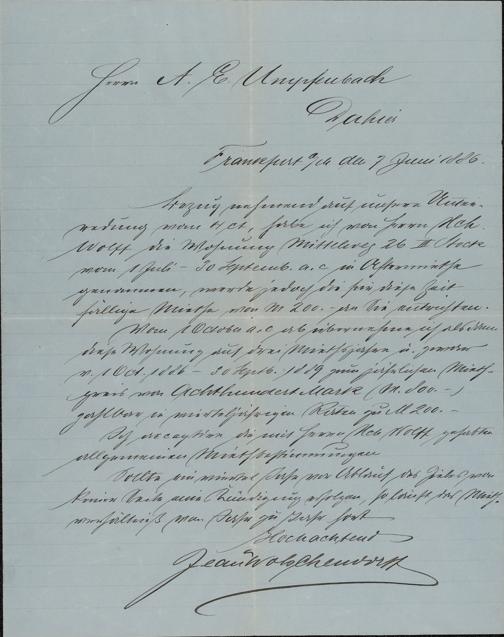 Herrn A. E. Umpfenbach
Dahier
Frankfurt a/M den 7 Juni 1886.
Bezug nehmend auf unsere Unter-
redung vom 4 ct, habe ich von Herrn Hch.
Wolff die Wohnung Mittelweg 26 III Stock
vom 1 Juli - 30 Septemb. a.c. in Aftermiethe
genommen, werde jedoch die für diese Zeit
fällige Miethe von M 200.- an Sie entrichten.
Vom 1 October a.c. ab übernehme ich alsdann
diese Wohnung auf drei Miethsjahre u. zwar
v. 1 Oct. 1886 - 30 Septb. 1889 zum jährlichen Mieth-
preis von Achthundert Mark (M. 800.-)
zahlbar in vierteljährigen Raten zu M 200.-
Ich acceptire die mit Herrn Hch Wolff gehabten
allgemeinen Miethbestimmungen
Sollte ein viertel Jahr vor Ablauf des Zieles von
keiner Seite eine Kündigung erfolgen, so läuft das Mieth-
verhältniß von Jahr zu Jahr fort
Hochachtend
Jean Wolschendorff